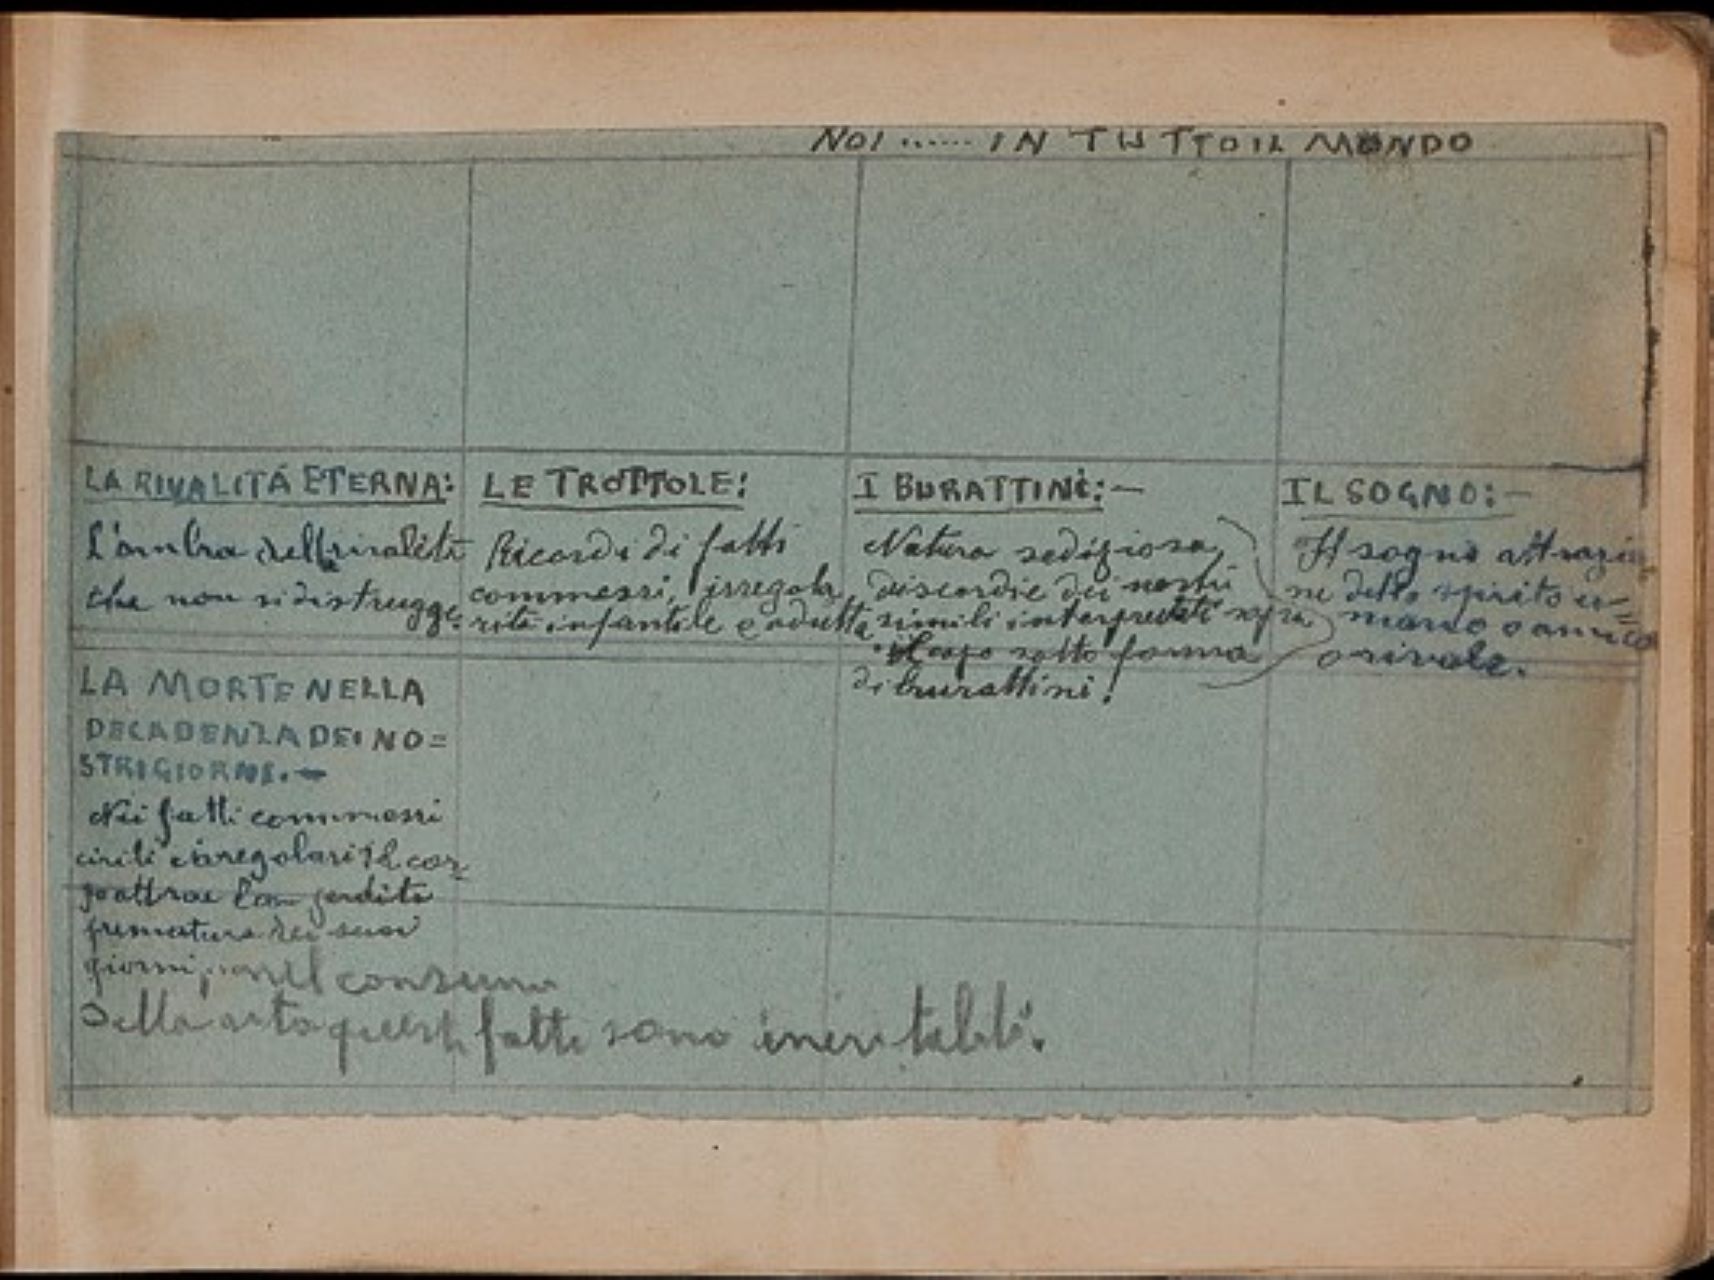 NOI ...... IN TUTTO IL MONDO
LA RIVALITÁ ETERNA:
L'ombra della rivalità
che non si distrugge.
LE TROTTOLE:
Ricordi di fatti
commessi, irregola
rità infantile e adulta
I BURATTINI:—
Natura sediziosa,
discordie dei nostri
simili interpretati sopra
il capo sotto forma
di burattini!
IL SOGNO:—
Il sogno attrazio
ne dello spirito u=
mano o amico
o rivale.
LA MORTE NELLA
DECADENZA DEI NO=
STRI GIORNI.—
Nei fatti commessi
civili e irregolari il cor=
po attrae la perdita
prematura dei suoi
giorni, nel consumo
della questi fatti sono inevitabili.